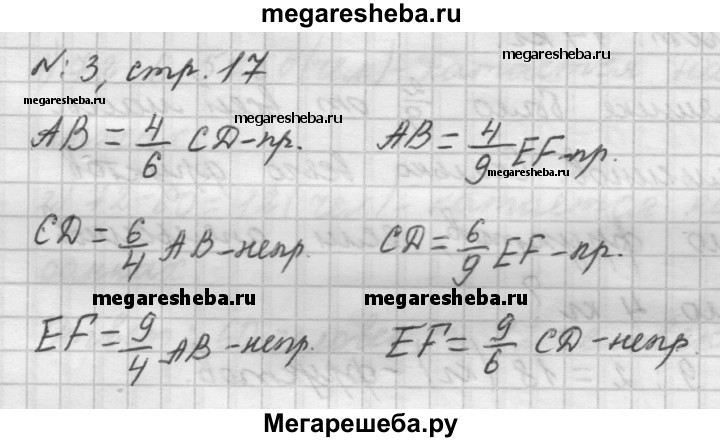 megaresheba.ru
№ 3, стр. 17
megaresheba.ru
megaresheba.ru
megaresheba.ru
AB = 4/6 CD - пр.
AB = 4/9 EF - пр.
megaresheba.ru
CD = 6/4 AB - непр.
CD = 6/9 EF - пр.
megaresheba.ru
megaresheba.ru
EF = 9/4 AB - непр.
EF = 9/6 CD - непр.
Мегарешеба.ру